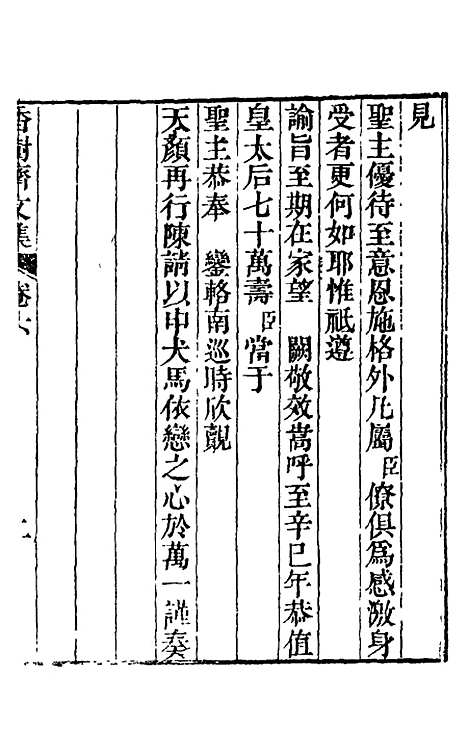 見
聖主優待至意恩施格外凡屬臣僚俱爲感激身
受者更何如耶惟祗遵
諭旨至期在家望　闕敬效嵩呼至辛巳年恭值
皇太后七十萬壽臣當于
聖主恭奉　鑾輅南巡時欣覿
天顏再行陳請以申犬馬依戀之心於萬一謹奏
香樹齋文集　卷六　二